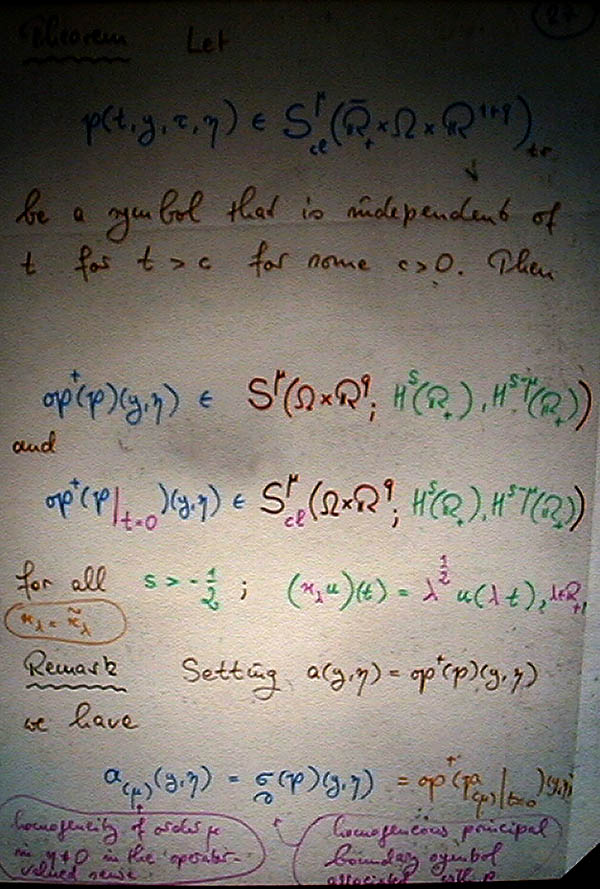 27
Theorem Let
p(t,y,τ,η) ∈ S^μ_cl(R̄₊×Ω×R^{1+q})_tr
be a symbol that is independent of
t for t > c for some c>0. Then
op⁺(p)(y,η) ∈ S^μ(Ω×R^q; H^s(R₊), H^{s-μ}(R₊))
and
op⁺(p|_{t=0})(y,η) ∈ S^μ_cl(Ω×R^q; H^s(R₊), H^{s-μ}(R₊))
for all s > -1/2 ; (κ_λ u)(t) = λ^{1/2} u(λt), λ∈R₊,
κ_λ = κ̃_λ
Remark Setting a(y,η) = op⁺(p)(y,η)
we have
a_(μ)(y,η) = σ_∂(p)(y,η) = op⁺(p_(μ)|_{t=0})(y,η)
homogeneity of order μ
in η≠0 in the operator-
valued sense.
homogeneous principal
boundary symbol
associated with p